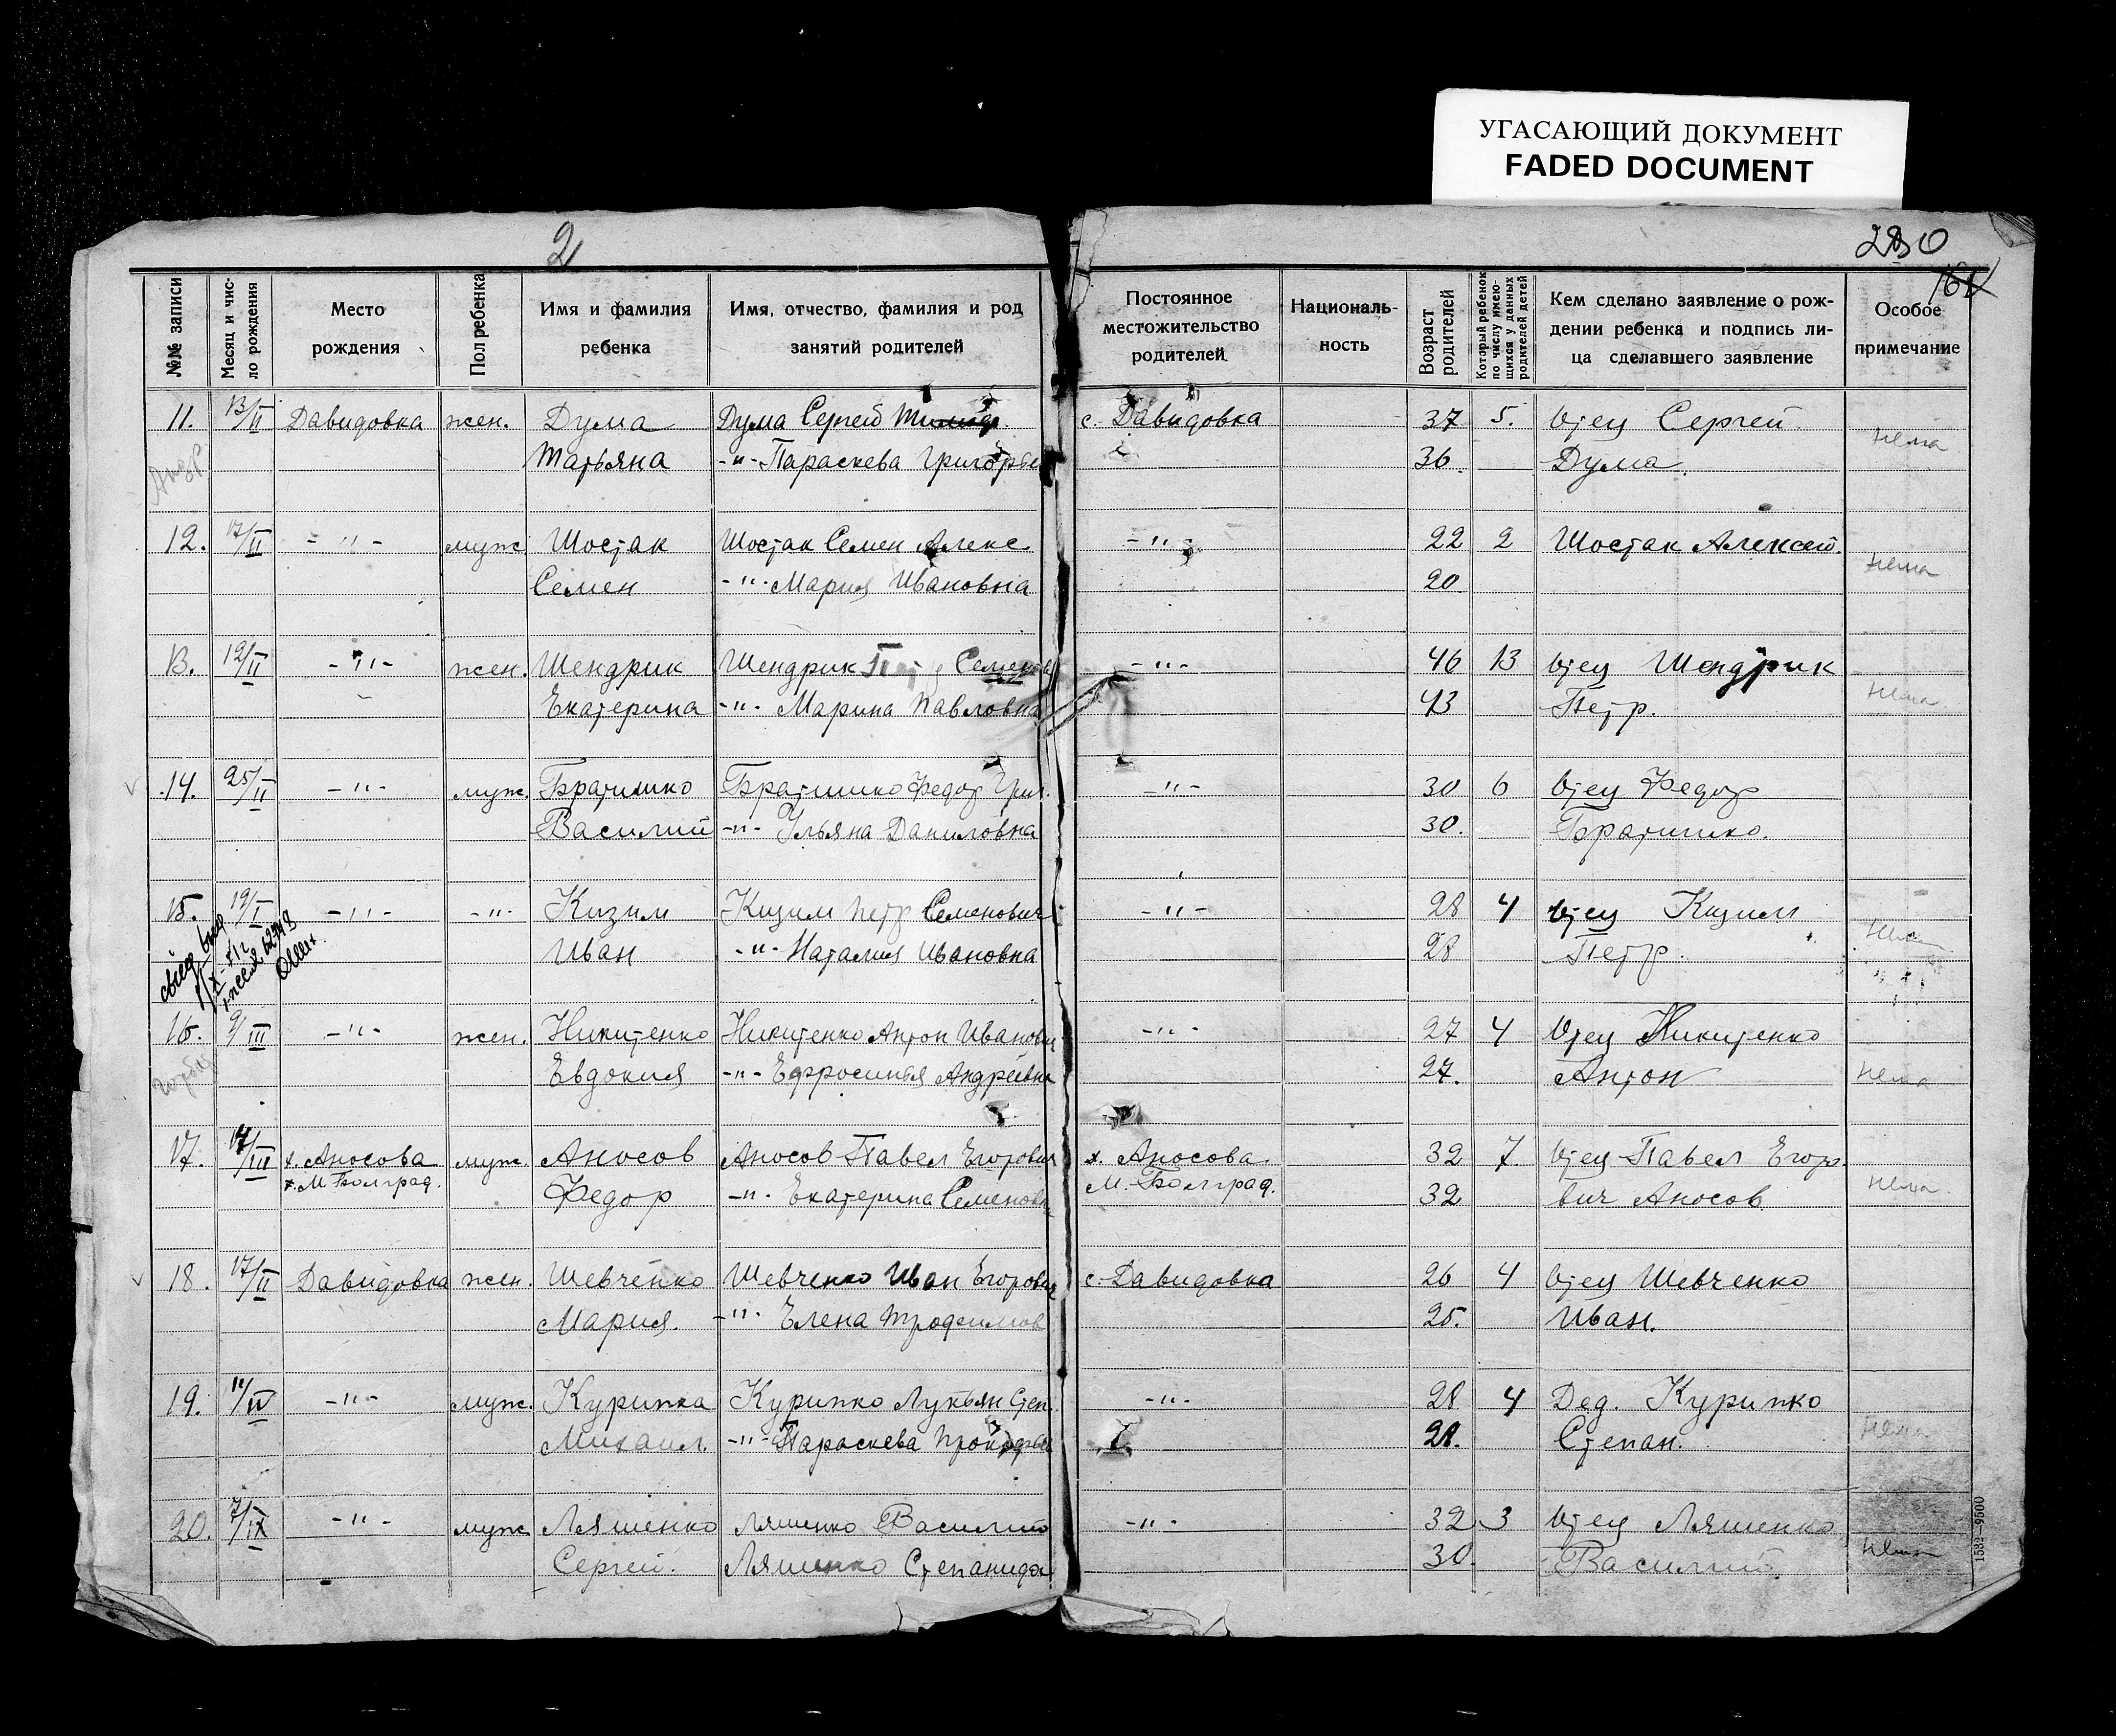 УГАСАЮЩИЙ ДОКУМЕНТ
FADED DOCUMENT
2
№№ записи
Месяц и чис-
ло рождения
Место
рождения
Пол ребенка
Имя и фамилия
ребенка
Имя, отчество, фамилия и род
занятий родителей
Постоянное
местожительство
родителей.
Националь-
ность
Возраст
родителей
Который ребенок
по числу имею-
щихся у данных
родителей детей
Кем сделано заявление о рож-
дении ребенка и подпись ли-
ца сделавшего заявление
Особое
примечание
11. 13/II Давидовка жен. Дума Дума Сергей с. Давидовка 37 5. Отец Сергей нема
Татьяна -"- Параскева Григорьев 36. Дума.
12. 17/II -"- муж Шостак Шостак Семен Алекс. -"- 22 2 Шостак Алексей. нема
Семен -"- Мария Ивановна 20
13. 12/II -"- жен. Шендрик Шендрик -"- 46 13 Отец Шендрик
Екатерина -"- Марина Павловна 43 Петр. нема
14. 25/II -"- муж. Братишко Братишко Федор Григ. -"- 30 6 Отец Федор
Василий -"- Ульяна Даниловна 30. Братишко.
15. 19/I -"- -"- Кизим Кизим Петр Семенович -"- 28 4 Отец Кизим
Иван -"- Наталия Ивановна 28 Петр.
16. 9/III -"- жен. Никитенко Никитенко Антон Иванович -"- 27 4 Отец Никитенко
Евдокия -"- Ефросинья Андреевна 27. Антон нема
17. /III х. Аносова муж. Аносов Аносов Павел Егорович х. Аносова. 32 7 Отец Павел Егоро
М. Болград. Федор -"- Екатерина Семеновн М. Болград. 32 вич Аносов нема
18. 17/II Давидовка жен. Шевченко Шевченко Иван Егорович с. Давидовка 26 4 Отец Шевченко
Мария. -"- Елена Трофимов 25. Иван.
19. 11/IV -"- муж. Курипка Курипко Лукьян Степ. -"- 28 4 Дед. Курипко
Михаил. -"- Параскева Прокофьев 28. Степан. нема
20. 7/IX -"- муж Ляшенко Ляшенко Василий -"- 32 3 Отец Ляшенко
Сергей. Ляшенко Степанида 30. Василий. нема
1532—9500